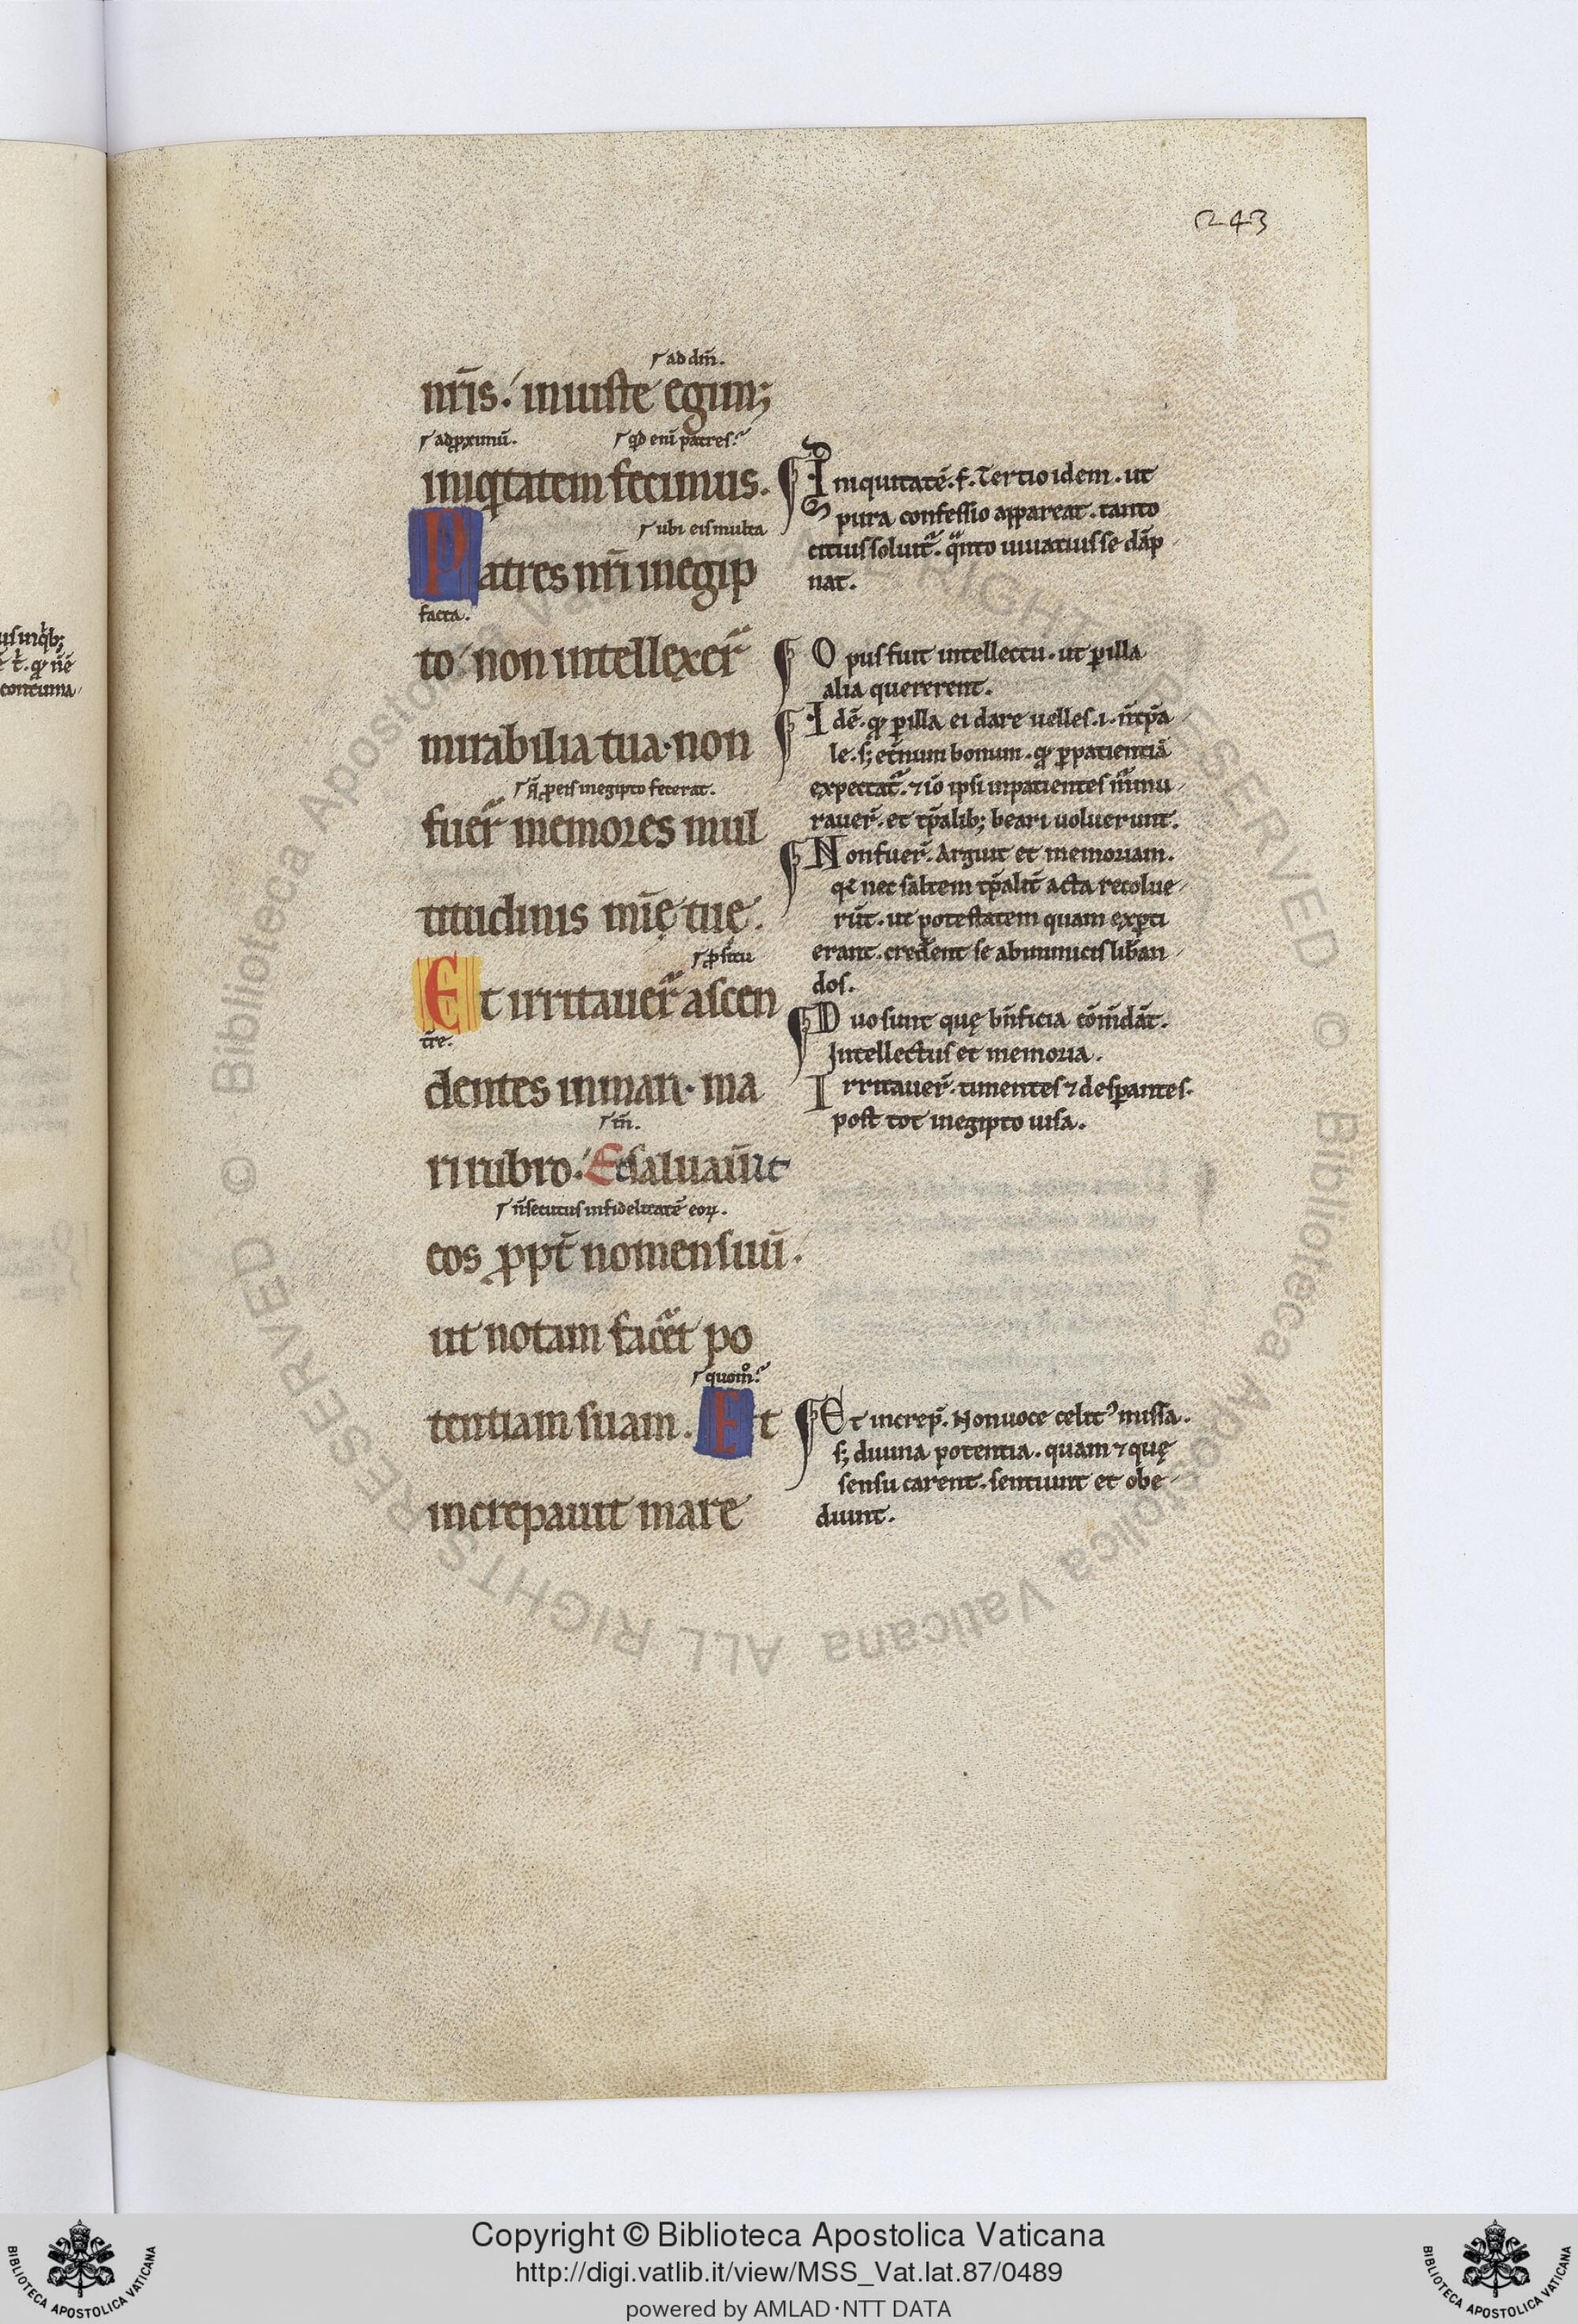 243
ad dm̄.
nr̄is. iniuste egim;
ad ꝓximū. qd eni patres?
iniq̇tatem fecimus.
ubi eis multa
Patres nr̄i in egip
facta.
to non intellexer̄
mirabilia tua. non
q̄ ꝓ eis in egipto fecerat.
fuer̄ memores mul
titudinis mīę tuę.
ꝓfītu
Et irritauer̄ ascen
tr̄e.
dentes in mari. ma
tn̄.
ri rubro. Et saluauit
n̄ secutus infidelitatē eoꝝ.
eos ꝓpt̄ nomen suū.
ut notam fac̄et po
quom̊?
tentiam suam. Et
increpauit mare
Iniquitatē. f. Tertio idem. ut
pura confessio appareat. tanto
citius soluit̄. q̄nto uiuatius se dāp
nat.
Opus fuit intellectu. ut ꝑ illa
alia quererent.
Idē. qꝫ ꝑ illa ei dare uelles. i. n̄ tp̄a
le. s; et̄num bonum. qꝫ ꝑ patientiā
expectat̄. ⁊ iō ipsi inpatientes m̄mu
rauer̄. et tp̄alib; beari uoluerunt.
Non fuer̄. Arguit et memoriam.
q̄ nec saltem tp̄alit̄ acta recolue
rūt. ut potestatem quam exꝑti
erant. cred̄ent se ab inimicis lib̄an
dos.
Duo sunt quę bn̄ficia cōm̄dāt.
Intellectus et memoria.
Irritauer̄. timentes ⁊ desꝑantes.
post tot in egipto uisa.
Et increp̄. Non uoce celit᾿ missa.
s; diuina potentia. quam ⁊ quę
sensu carent. sentiunt et obe
diunt.
us in q̇b;
contuma
Copyright © Biblioteca Apostolica Vaticana
http://digi.vatlib.it/view/MSS_Vat.lat.87/0489
powered by AMLAD·NTT DATA
BIBLIOTECA APOSTOLICA VATICANA
BIBLIOTECA APOSTOLICA VATICANA
© Biblioteca Apostolica Vaticana ALL RIGHTS RESERVED
© Biblioteca Apostolica Vaticana ALL RIGHTS RESERVED